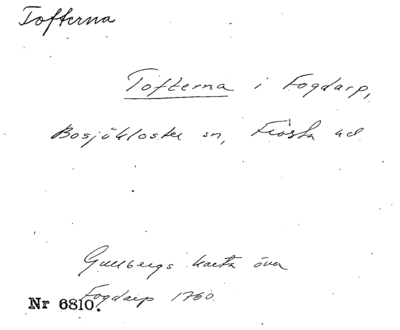 Tofterna
Tofterna i Fogdarp,
Bosjökloster sn, Frosta hd
Gullbergs karta över
Fogdarp 1760.
Nr 6810.